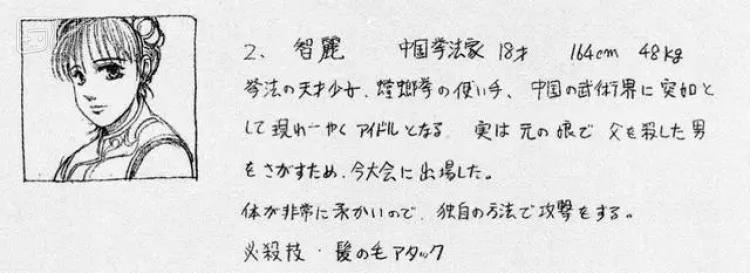 2、 智麗 中国拳法家 18才 164cm 48kg
拳法の天才少女、螳螂拳の使い手、中国の武術界に突如と
して現れ一やくアイドルとなる 実は元の娘で 父を殺した男
をさがすため、今大会に出場した。
体が非常に柔かいので、独自の方法で攻撃をする。
必殺技・髪の毛アタック